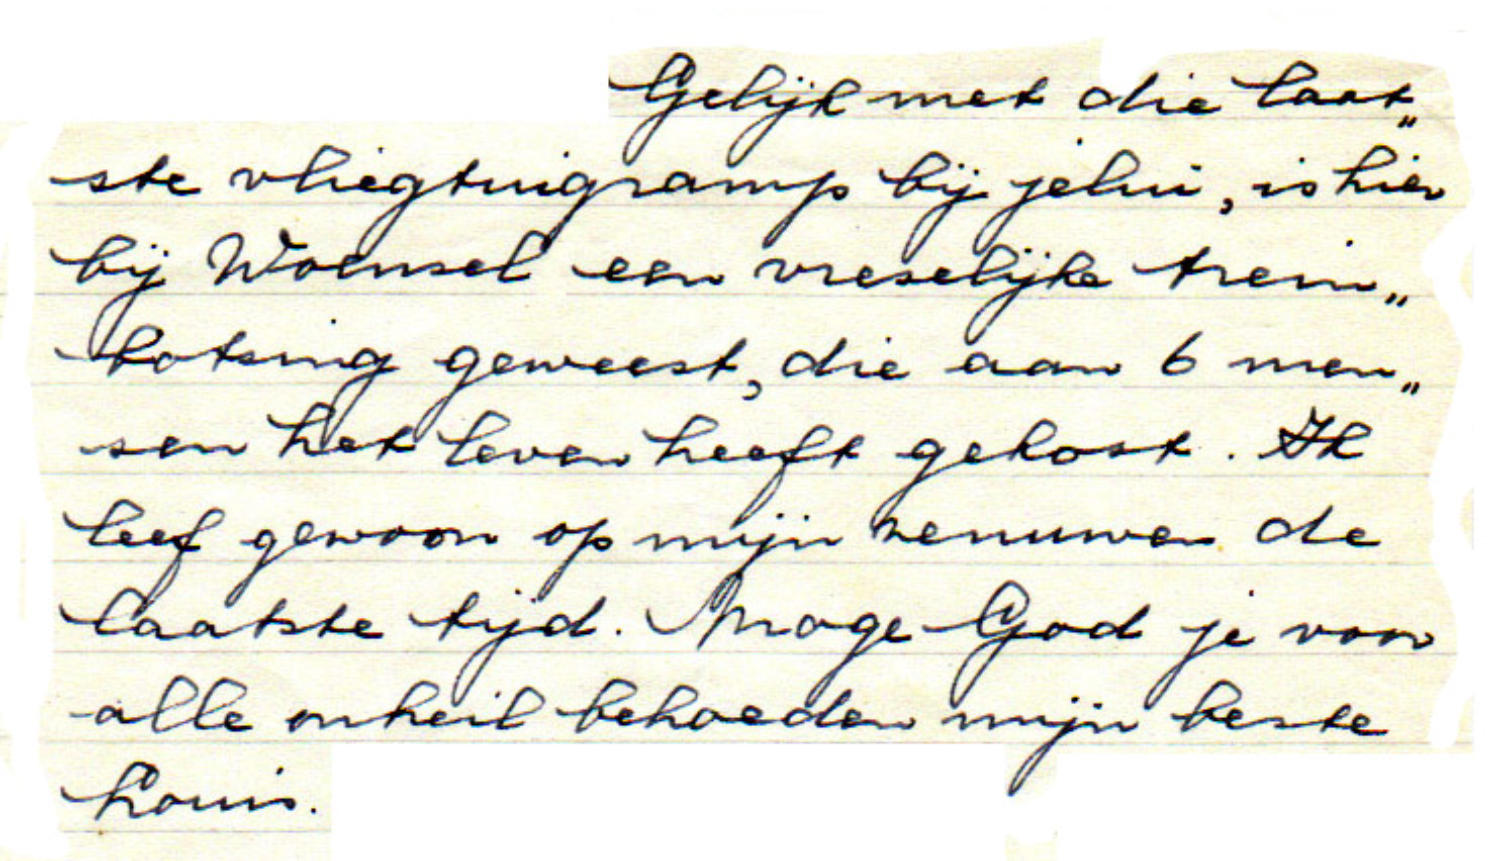 Gelijk met die laat„
ste vliegtuigramp bij jelui, is hier
bij Woensel een vreselijke trein„
botsing geweest, die aan 6 men„
sen het leven heeft gekost. Ik
leef gewoon op mijn zenuwen de
laatste tijd. Moge God je voor
alle onheil behoeden mijn beste
Louis.